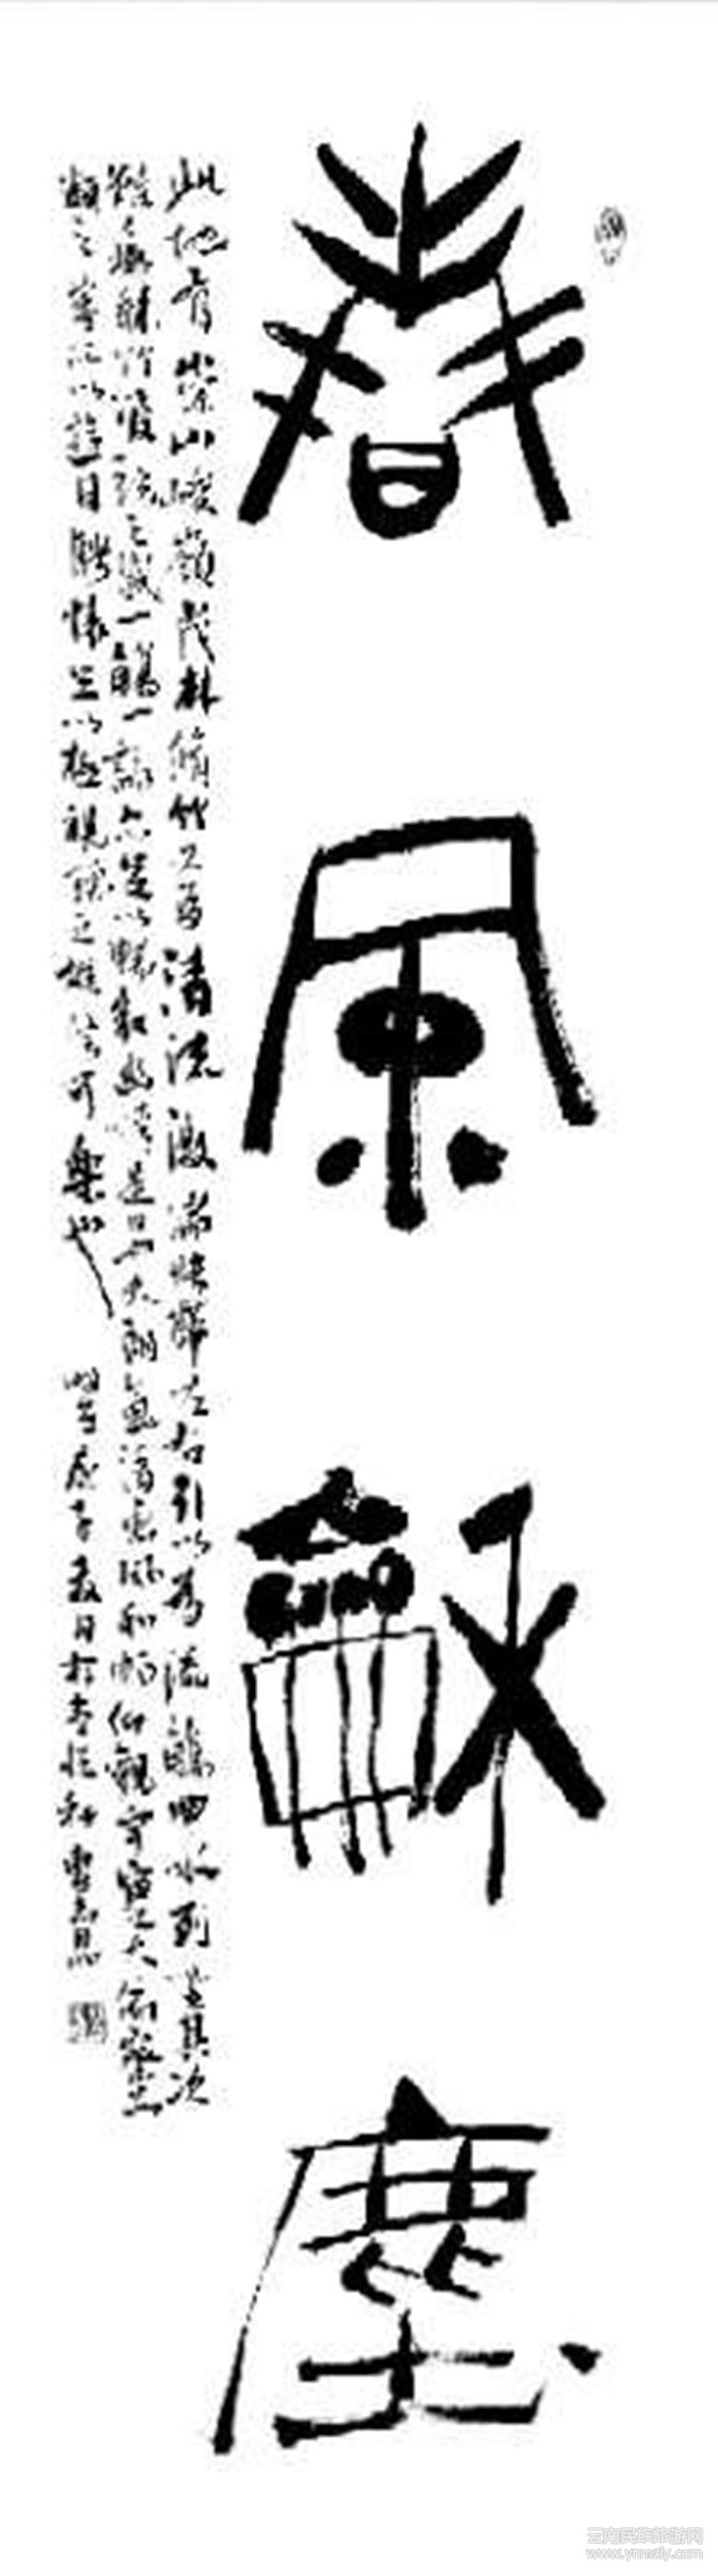 春風龢塵
此地有崇山峻嶺茂林脩竹又有清流激湍映帶左右引以為流觴曲水列坐其次
雖無絲竹管弦之盛一觴一詠亦足以暢敘幽情是日也天朗氣清惠風和暢仰觀宇宙之大俯察品
類之盛所以遊目騁懷足以極視聽之娛信可樂也 日於
云南民族旅游网
www.ynmzly.com